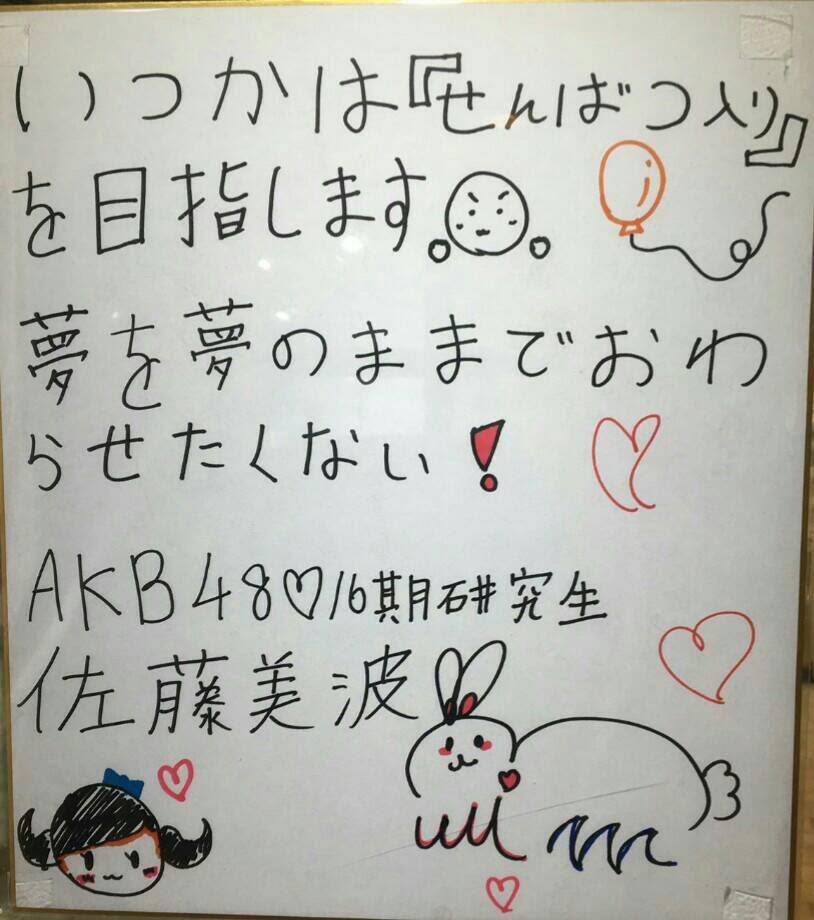 いつかは『せんばつ入り』
を目指します
夢を夢のままでおわ
らせたくない！
AKB48♡16期研究生
佐藤美波